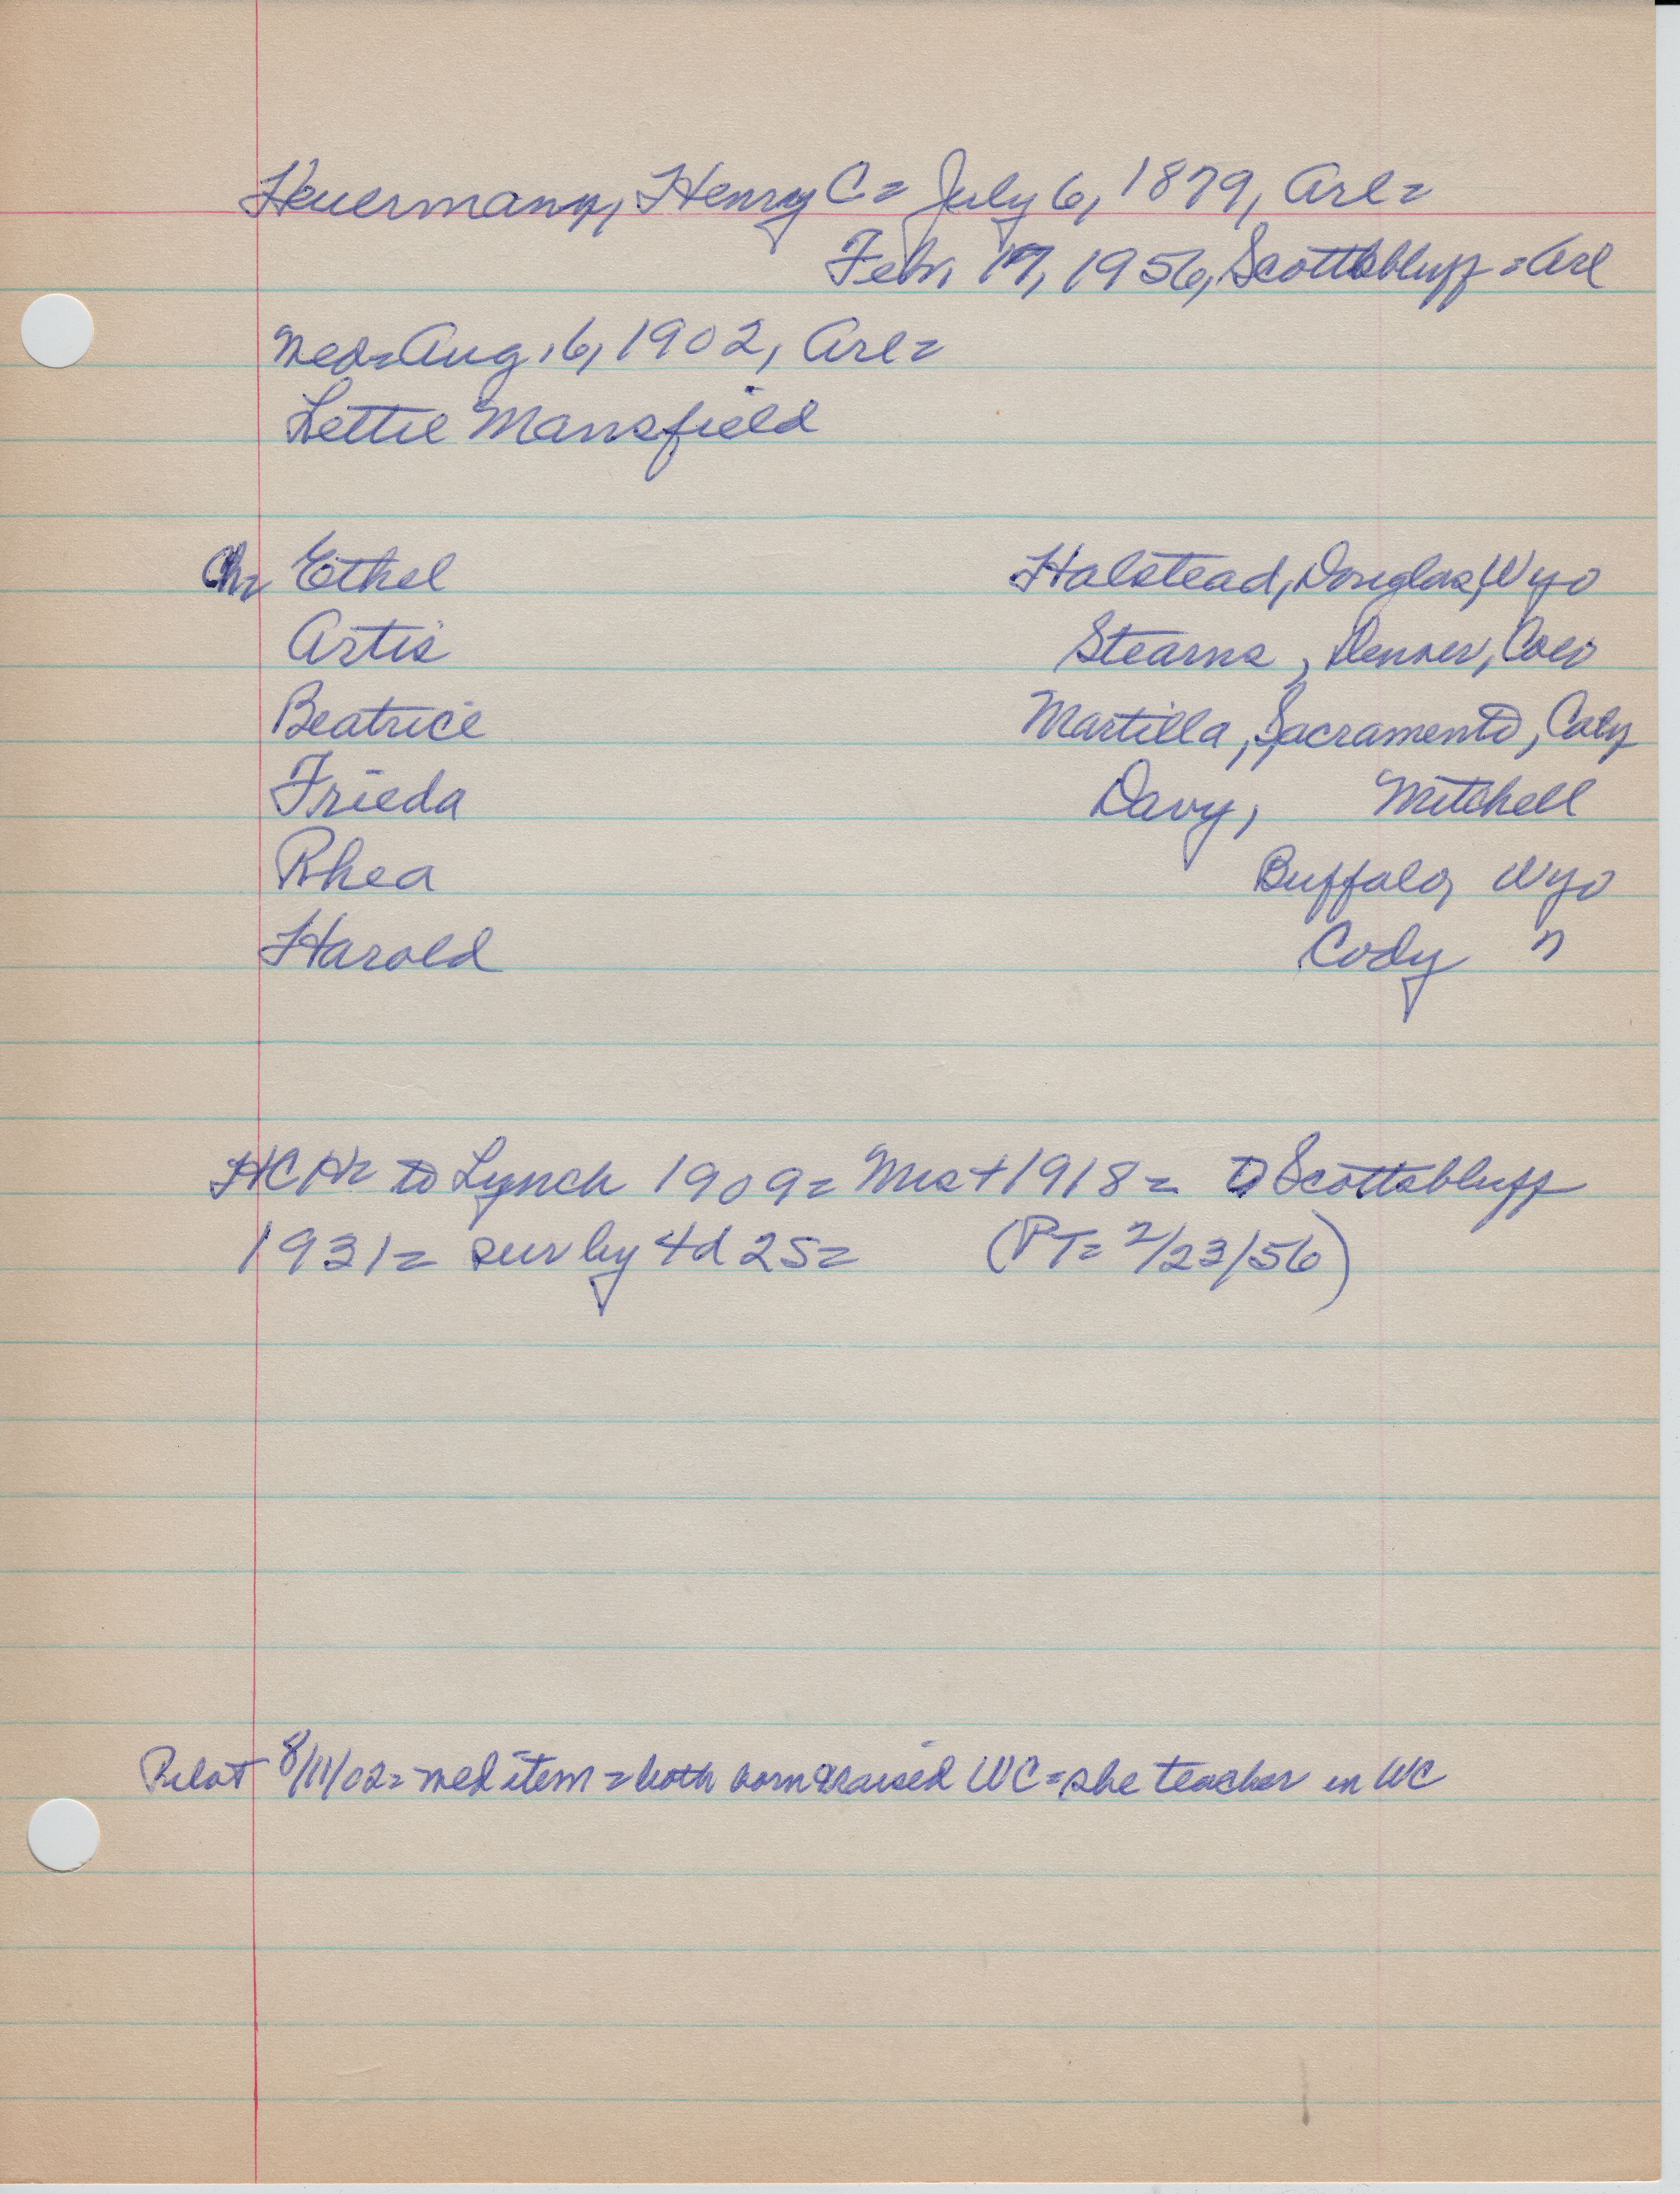 Heuermann, Henry C= July 6, 1879, Arl=
Feb. 17, 1956, Scottsbluff = Arl
Med= Aug. 6, 1902, Arl=
Lettie Mansfield
Ch= Ethel Halstead, Douglas, Wyo
Artis Stearns, Denver, Colo
Beatrice Martilla, Sacramento, Calif
Frieda Davy, Mitchell
Rhea Buffalo, Wyo
Harold Cody "
HCH= to Lynch 1909= Mrs + 1918= to Scottsbluff
1931= sur by 4d 2S= (PT= 2/23/56)
Pilot 8/11/02= med item = both born & raised WC = she teacher in WC